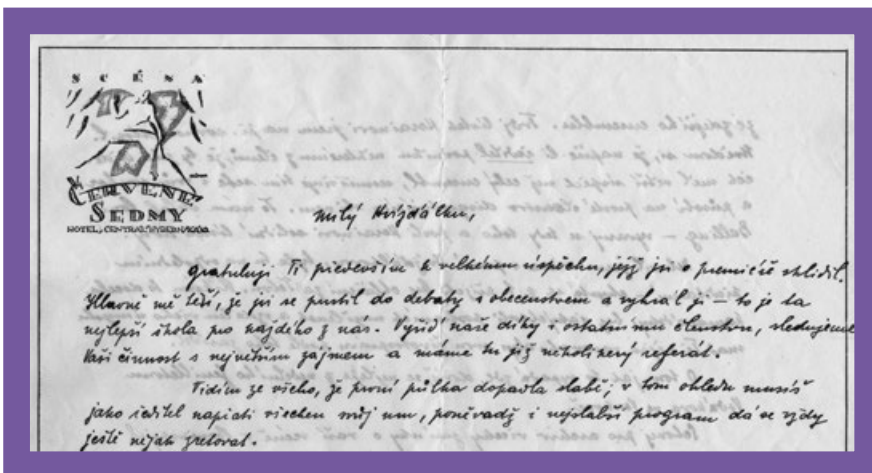 SCÉNA
ČERVENÉ
SEDMY
HOTEL CENTRAL HYBERNSKÁ
milý Hvížďálku,
gratuluji Ti především k velkému úspěchu, jejž jsi o premiéře sklidil.
Hlavně mě těší, že jsi se pustil do debaty s obecenstvem a vyhrál ji — to je ta
nejlepší škola pro každého z nás. Vyřiď naše díky i ostatnímu členstvu, sledujeme
Vaši činnost s největším zájmem a máme tu již několikerý referát.
Vidím ze všeho, že první půlka dopadla slabě; v tom ohledu musíš
jako ředitel napiati všechen svůj um, poněvadž i nejslabší program dá se vždy
ještě nějak zretovat.